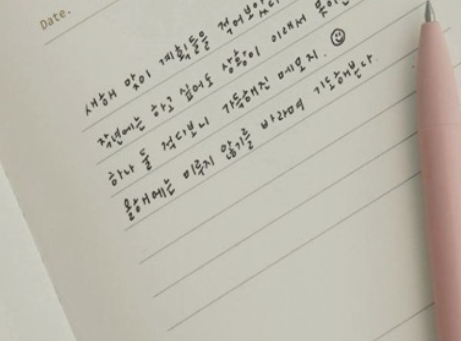 Date.
새해 맞이 계획들을 적어보았
작년에는 하고 싶어도 상황이 이래서
하나 둘 적다보니 가득해진 메모지. ☺
올해에는 미루지 않기를 바라며 기도해본다.